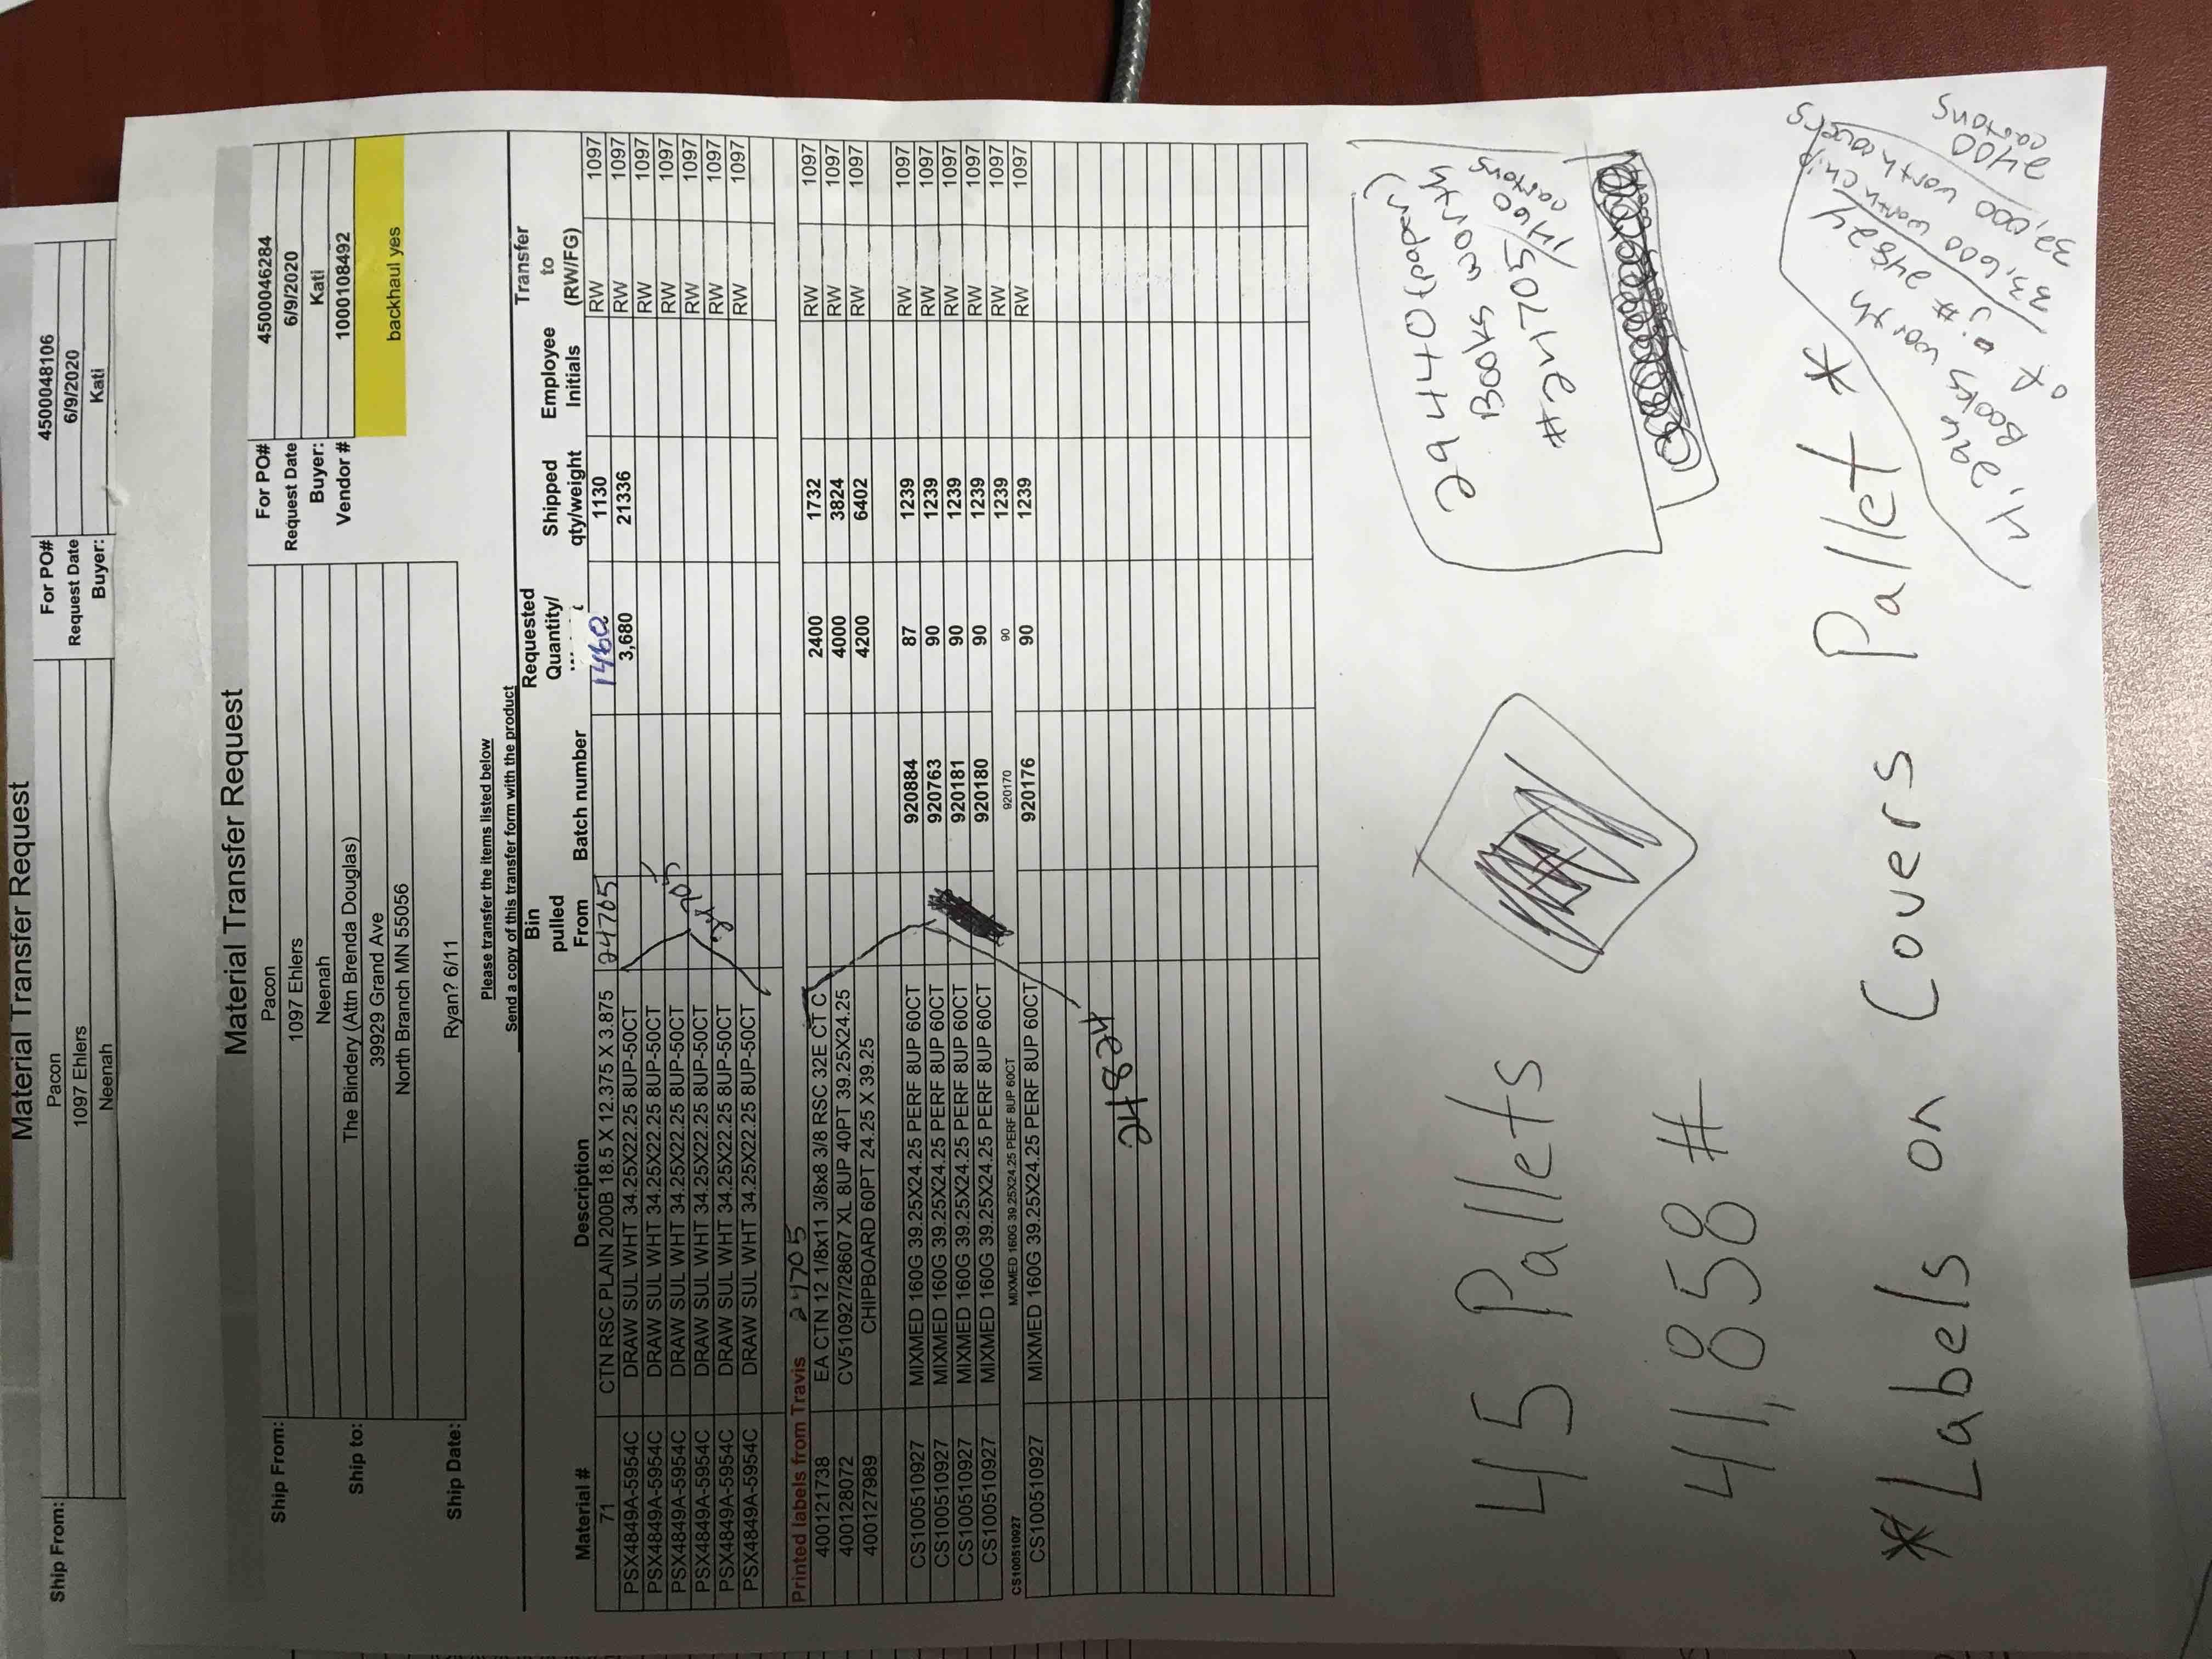 Material Transfer Request
Ship From: Pacon For PO# 4500048106
1097 Ehlers Request Date 6/9/2020
Neenah Buyer: Kati
Material Transfer Request
Ship From: Pacon For PO# 4500046284
1097 Ehlers Request Date 6/9/2020
Neenah Buyer: Kati
Ship to: The Bindery (Attn Brenda Douglas) Vendor # 1000108492
39929 Grand Ave
North Branch MN 55056 backhaul yes
Ship Date: Ryan? 6/11
Please transfer the items listed below
Send a copy of this transfer form with the product
Material # Description Bin pulled From Batch number Requested Quantity/ Shipped qty/weight Employee Initials Transfer to (RW/FG)
71 CTN RSC PLAIN 200B 18.5 X 12.375 X 3.875 24705 1460 1130 RW 1097
PSX4849A-5954C DRAW SUL WHT 34.25X22.25 8UP-50CT 3,680 21336 RW 1097
PSX4849A-5954C DRAW SUL WHT 34.25X22.25 8UP-50CT RW 1097
PSX4849A-5954C DRAW SUL WHT 34.25X22.25 8UP-50CT RW 1097
PSX4849A-5954C DRAW SUL WHT 34.25X22.25 8UP-50CT RW 1097
PSX4849A-5954C DRAW SUL WHT 34.25X22.25 8UP-50CT RW 1097
PSX4849A-5954C DRAW SUL WHT 34.25X22.25 8UP-50CT RW 1097
24705
Printed labels from Travis 24705
400121738 EA CTN 12 1/8x11 3/8x8 3/8 RSC 32E CT C 2400 1732 RW 1097
400128072 CV510927/28607 XL 8UP 40PT 39.25X24.25 4000 3824 RW 1097
400127989 CHIPBOARD 60PT 24.25 X 39.25 4200 6402 RW 1097
CS100510927 MIXMED 160G 39.25X24.25 PERF 8UP 60CT 920884 87 1239 RW 1097
CS100510927 MIXMED 160G 39.25X24.25 PERF 8UP 60CT 920763 90 1239 RW 1097
CS100510927 MIXMED 160G 39.25X24.25 PERF 8UP 60CT 920181 90 1239 RW 1097
CS100510927 MIXMED 160G 39.25X24.25 PERF 8UP 60CT 920180 90 1239 RW 1097
CS100510927 MIXMED 160G 39.25X24.25 PERF 8UP 60CT 920170 90 1239 RW 1097
CS100510927 MIXMED 160G 39.25X24.25 PERF 8UP 60CT 920176 90 1239 RW 1097
24824
29440 (paper)
Books worth
#24705/1460
cartons
45 Pallets
41,858 #
*Labels on Covers Pallet *
4,296
Books worth
of j.# 24824
33,600 worth chip
32,000 worth covers
2400
cartons